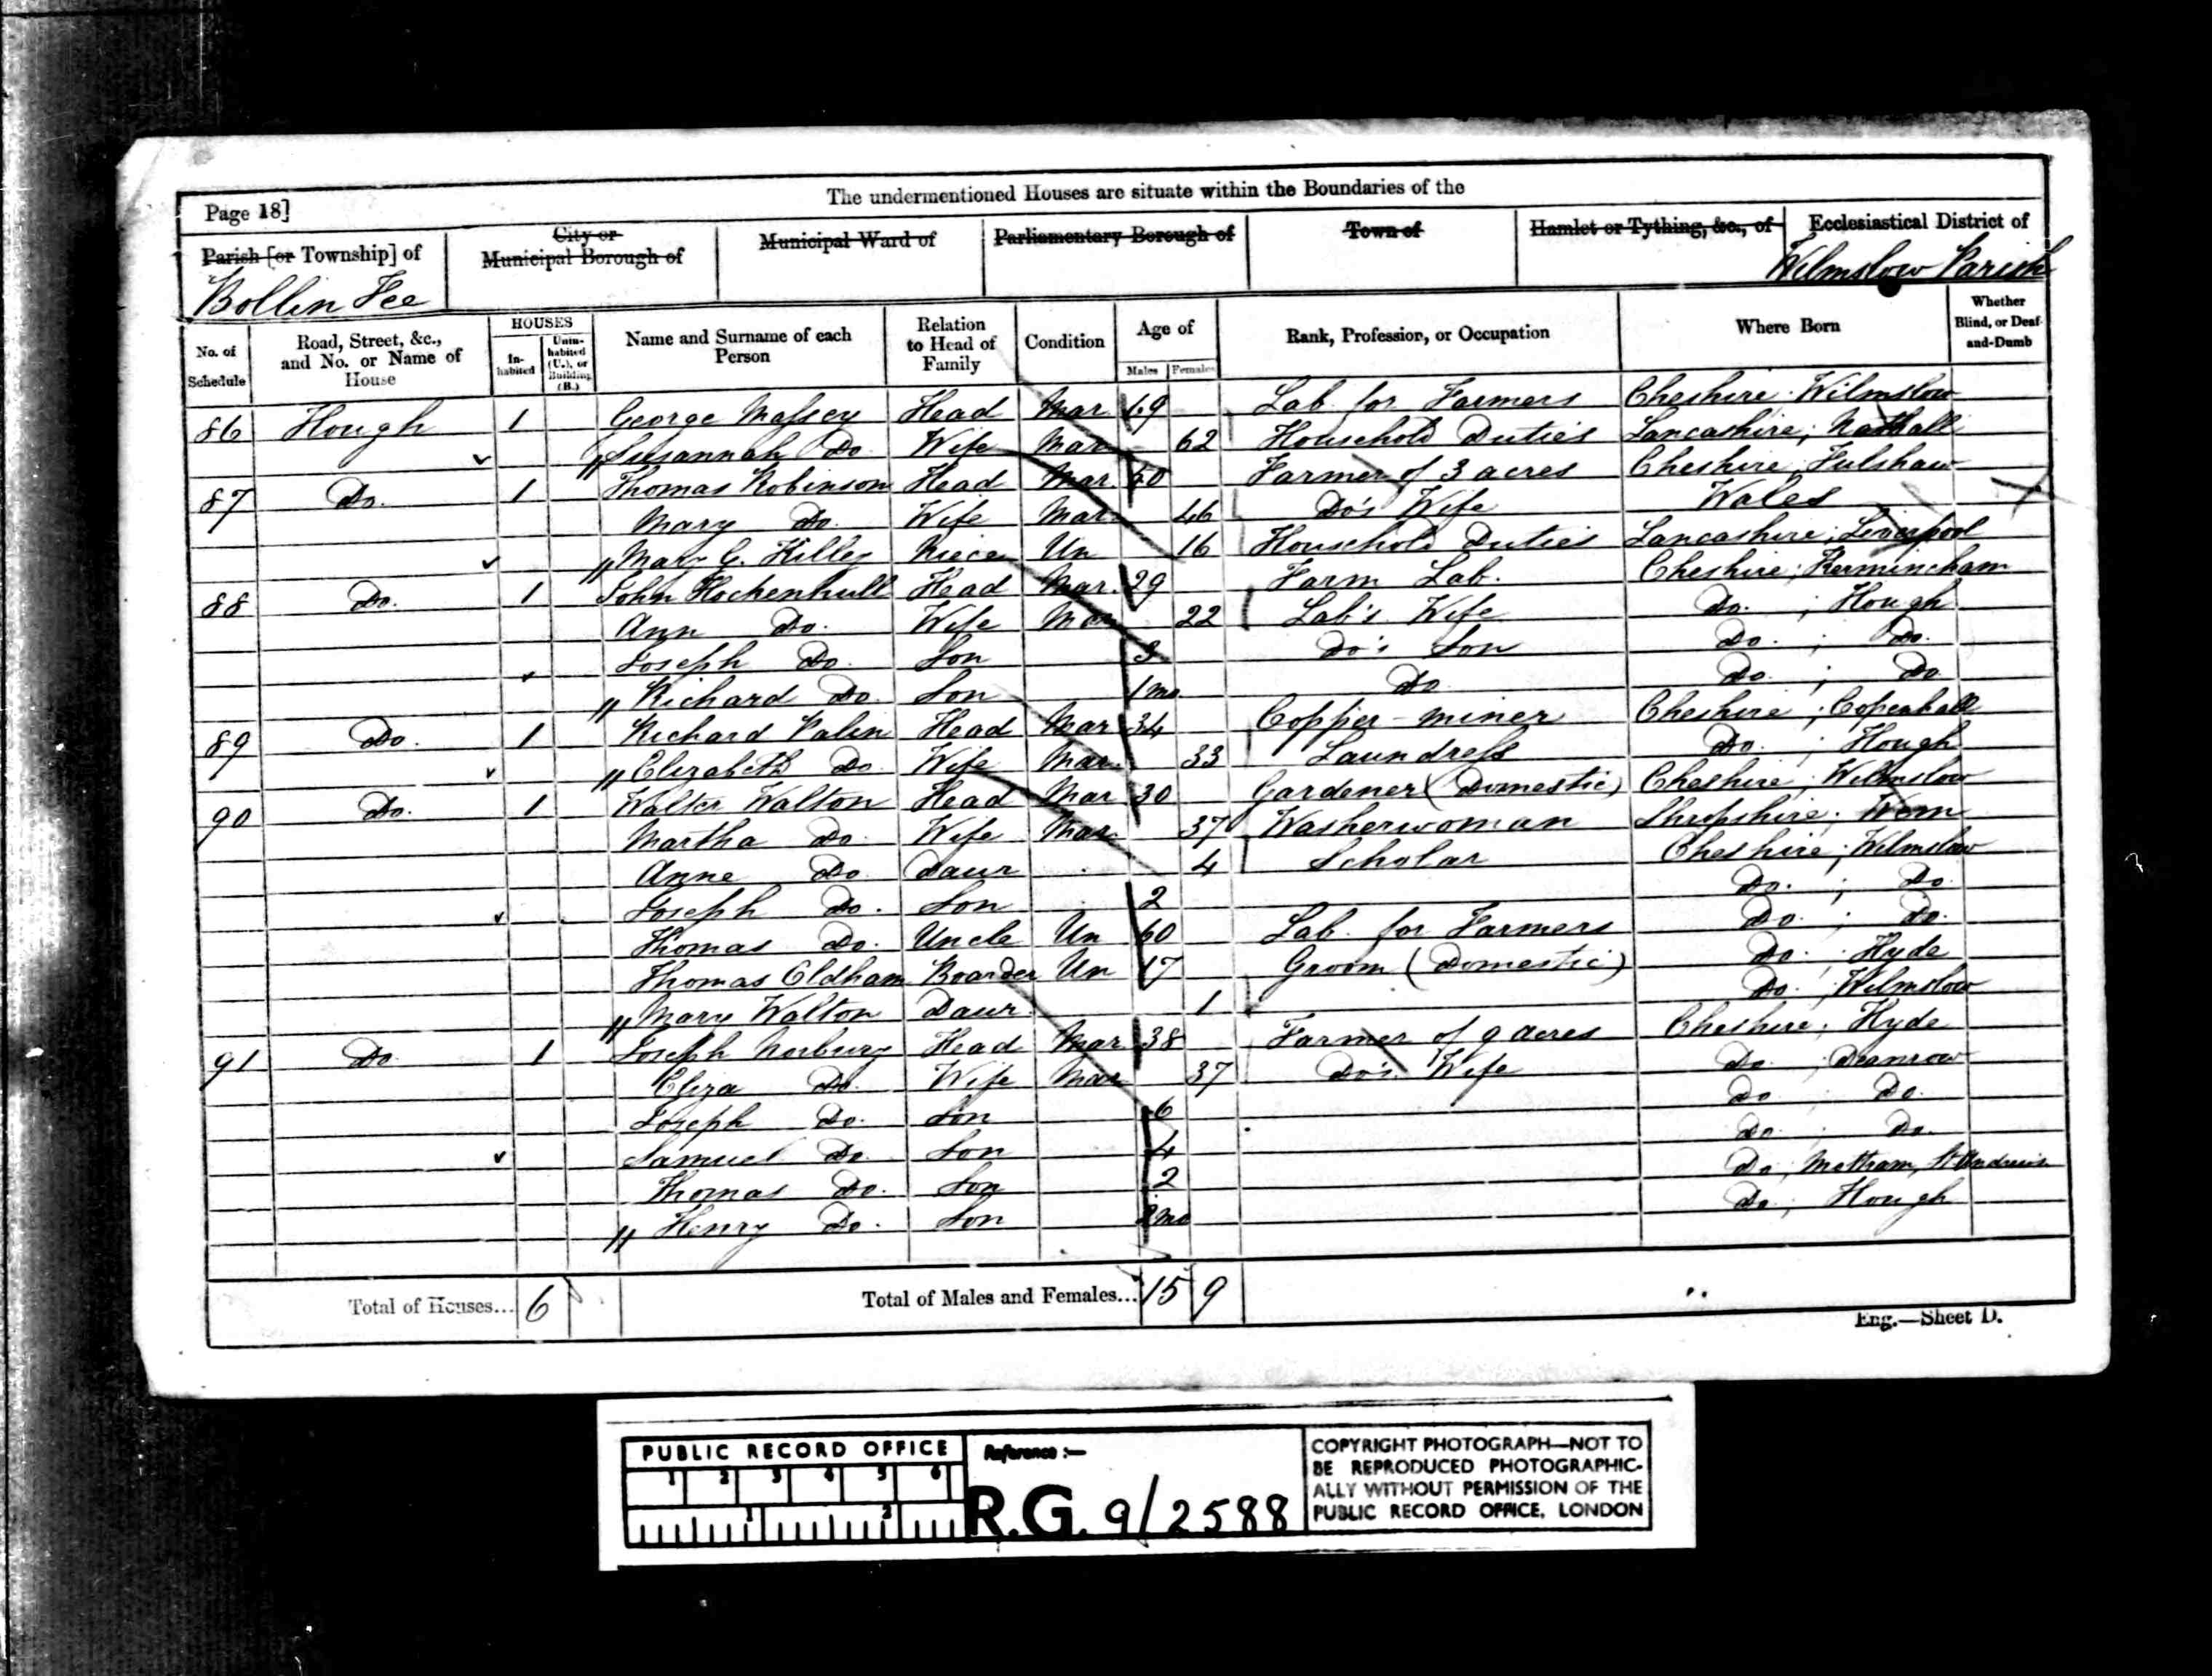 The undermentioned Houses are situate within the Boundaries of the
Page 18]
Parish [or Township] of
Bollin Fee
City or
Municipal Borough of
Municipal Ward of
Parliamentary Borough of
Town of
Hamlet or Tything, &c., of
Ecclesiastical District of
Wilmslow Parish
No. of Schedule
Road, Street, &c., and No. or Name of House
HOUSES
In-habited
Unin-habited (U.), or Building (B.)
Name and Surname of each Person
Relation to Head of Family
Condition
Age of
Males
Females
Rank, Profession, or Occupation
Where Born
Whether Blind, or Deaf-and-Dumb
86 Hough 1 George Massey Head Mar 69 Lab. for Farmers Cheshire; Wilmslow
Susannah Do Wife Mar 62 Household Duties Lancashire;
87 Do. 1 Thomas Robinson Head Mar Farmer of 3 acres Cheshire; Fulshaw
Mary Do. Wife Mar 46 Do's Wife Wales
Mary G. Niece Un 16 Household Duties Lancashire; Liverpool
88 Do. 1 John Hockenhull Head Mar. 29 Farm Lab. Cheshire; Kermincham
Ann Do. Wife Mar 22 Lab's Wife Do. ; Hough
Joseph Do. Son 3 Do's Son Do. ; Do.
Richard Do. Son 1 mo Do Do. ; Do
89 Do. 1 Richard Palin Head Mar 34 Copper-miner Cheshire; Copenhall
Elizabeth Do. Wife Mar. 33 Laundress Do. ; Hough
90 Do. 1 Walter Walton Head Mar 30 Gardener (Domestic) Cheshire; Wilmslow
Martha Do. Wife Mar. 37 Washerwoman Shropshire; Wem
Anne Do Daur 4 Scholar Cheshire; Wilmslow
Joseph Do. Son 2 Do. ; Do
Thomas Do. Uncle Un 60 Lab. for Farmers Do. ; Do.
Thomas Oldham Boarder Un 17 Groom (Domestic) Do. ; Hyde
Mary Walton Daur. 1 Do. ; Wilmslow
91 Do. 1 Joseph Norbury Head Mar 38 Farmer of 9 acres Cheshire; Hyde
Eliza Do. Wife Mar 37 Do's. Wife Do. ; Deanrow
Joseph Do. Son 6 Do ; Do.
Samuel Do. Son 4 Do. ; Do.
Thomas Do. Son 2 Do; Mottram, St Andrew
Henry Do. Son mo Do; Hough
Total of Houses... 6
Total of Males and Females... 15 9
Eng.—Sheet D.
PUBLIC RECORD OFFICE
1 2 3 4 5 6
1 2
Reference :—
R.G. 9/2588
COPYRIGHT PHOTOGRAPH—NOT TO
BE REPRODUCED PHOTOGRAPHIC-
ALLY WITHOUT PERMISSION OF THE
PUBLIC RECORD OFFICE, LONDON